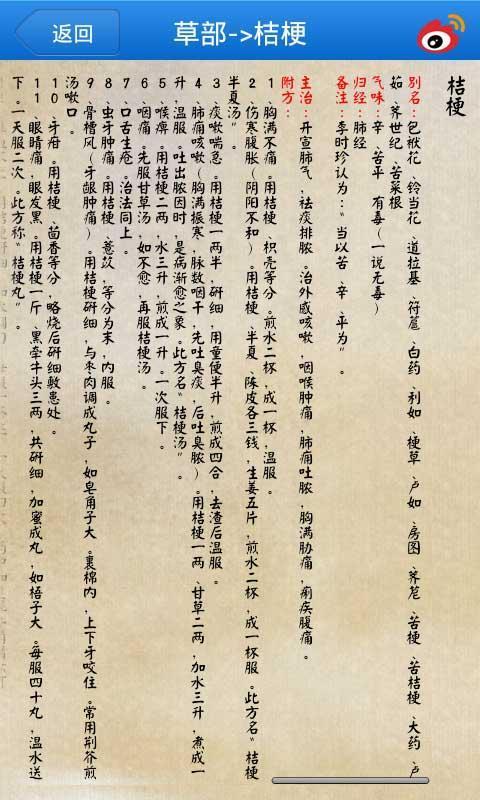 返回
草部->桔梗
桔梗
别名:包袱花、铃当花、道拉基、符蔰、白药、利如、梗草、卢如、房图、荠苨、苦梗、苦桔梗、大药、卢
茹、荠世纪、苦菜根
气味:辛、苦平、有毒(一说无毒)
归经:肺经
备注:李时珍认为:“当以苦、辛、平为”。
主治:开宣肺气,祛痰排脓。治外感咳嗽,咽喉肿痛,肺痈吐脓,胸满胁痛,痢疾腹痛。
附方:
1、胸满不痛。用桔梗、枳壳等分。煎水二杯,成一杯,温服。
2、伤寒腹胀(阴阳不和)。用桔梗、半夏、陈皮各三钱,生姜五片,煎水二杯,成一杯服。此方名“桔梗
半夏汤”。
3、痰嗽喘急。用桔梗一两半,研细,用童便半升,煎成四合,去渣后温服。
4、肺痈咳嗽(胸满振寒,脉数咽干,先吐臭痰,后吐臭脓)。用桔梗一两、甘草二两,加水三升,煮成一
升,温服。吐出脓因时,是病渐愈之象。此方名“桔梗汤”。
5、喉痹。用桔梗二两,水三升,煎成一升。一次服下。
6、咽痛。先服甘草汤,如不愈,再服桔梗汤。
7、口舌生疮。治法同上。
8、虫牙肿痛。用桔梗、薏苡,等分为末,内服。
9、骨槽风(牙龈肿痛)。用桔梗研细,与枣肉调成丸子,如皂角子大。裹棉内,上下牙咬住。常用荆芥煎
汤嗽口。
10、牙疳。用桔梗、茴香等分,略烧后研细敷患处。
11、眼睛痛,眼发黑。用桔梗一斤、黑牵牛头三两,共研细,加蜜成丸,如梧子大。每服四十丸,温水送
下。一天服二次。此方称“桔梗丸”。